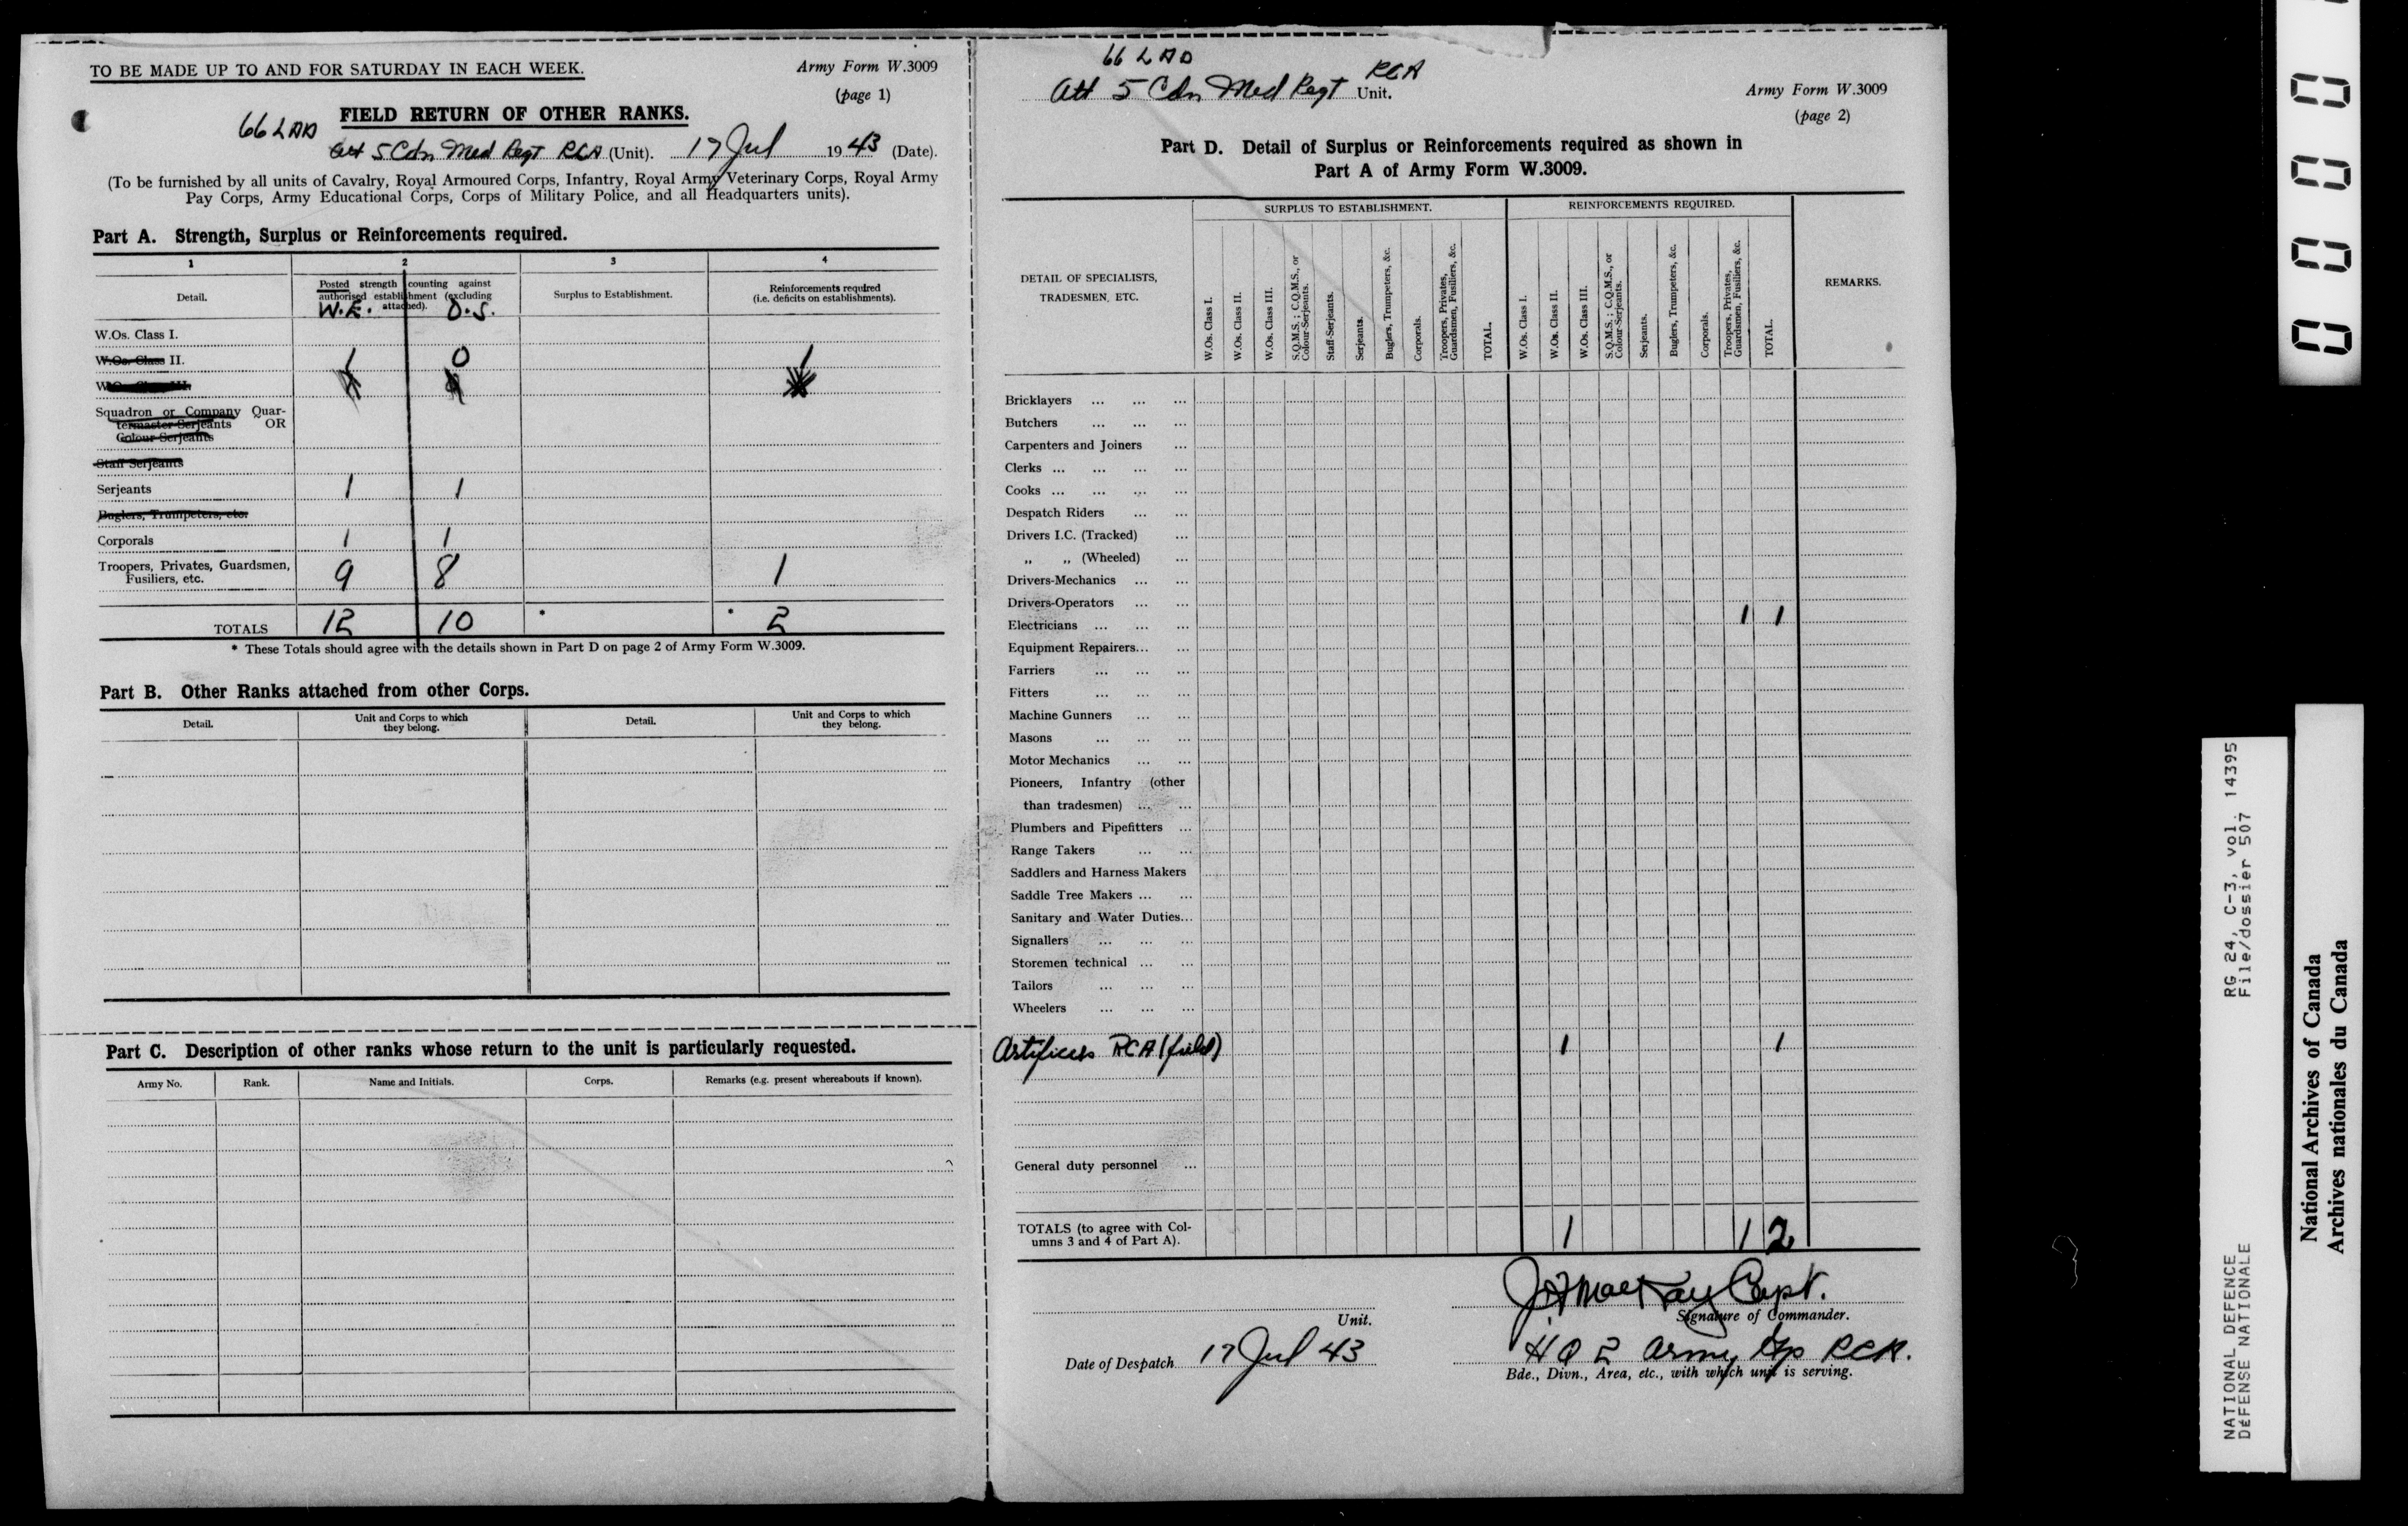 TO BE MADE UP TO AND FOR SATURDAY IN EACH WEEK.
Army Form W.3009
(page 1)
FIELD RETURN OF OTHER RANKS.
66 LAD
att 5 Cdn Med Regt RCA (Unit). 17 Jul 1943 (Date).
(To be furnished by all units of Cavalry, Royal Armoured Corps, Infantry, Royal Army Veterinary Corps, Royal Army
Pay Corps, Army Educational Corps, Corps of Military Police, and all Headquarters units).
Part A. Strength, Surplus or Reinforcements required.
1 2 3 4
Detail.
Posted strength counting against
authorised establishment (excluding
attached).
W.E. O.S.
Surplus to Establishment.
Reinforcements required
(i.e. deficits on establishments).
W.Os. Class I.
W.Os. Class II. 1 0 1
W.Os. Class III.
Squadron or Company Quar-
termaster-Serjeants OR
Colour-Serjeants
Staff Serjeants
Serjeants 1 1
Buglers, Trumpeters, etc.
Corporals 1 1
Troopers, Privates, Guardsmen,
Fusiliers, etc. 9 8 1
TOTALS 12 10 * * 2
* These Totals should agree with the details shown in Part D on page 2 of Army Form W.3009.
Part B. Other Ranks attached from other Corps.
Detail.
Unit and Corps to which
they belong.
Detail.
Unit and Corps to which
they belong.
Part C. Description of other ranks whose return to the unit is particularly requested.
Army No. Rank. Name and Initials. Corps. Remarks (e.g. present whereabouts if known).
66 LAD
Att 5 Cdn Med Regt RCA Unit.
Army Form W.3009
(page 2)
Part D. Detail of Surplus or Reinforcements required as shown in
Part A of Army Form W.3009.
DETAIL OF SPECIALISTS,
TRADESMEN, ETC.
SURPLUS TO ESTABLISHMENT.
W.Os. Class I.
W.Os. Class II.
W.Os. Class III.
S.Q.M.S.; C.Q.M.S., or
Colour-Serjeants.
Staff-Serjeants.
Serjeants.
Buglers, Trumpeters, &c.
Corporals.
Troopers, Privates,
Guardsmen, Fusiliers, &c.
TOTAL.
REINFORCEMENTS REQUIRED.
W.Os. Class I.
W.Os. Class II.
W.Os. Class III.
S.Q.M.S.; C.Q.M.S., or
Colour-Serjeants.
Serjeants.
Buglers, Trumpeters, &c.
Corporals.
Troopers, Privates,
Guardsmen, Fusiliers, &c.
TOTAL.
REMARKS.
Bricklayers ... ... ...
Butchers ... ... ...
Carpenters and Joiners ...
Clerks ... ... ... ...
Cooks ... ... ... ...
Despatch Riders ... ...
Drivers I.C. (Tracked) ...
„ „ (Wheeled) ...
Drivers-Mechanics ... ...
Drivers-Operators ... ...
Electricians ... ... ... 1 1
Equipment Repairers... ...
Farriers ... ... ...
Fitters ... ... ...
Machine Gunners ... ...
Masons ... ... ...
Motor Mechanics ... ...
Pioneers, Infantry (other
than tradesmen) ... ...
Plumbers and Pipefitters ...
Range Takers ... ...
Saddlers and Harness Makers
Saddle Tree Makers ... ...
Sanitary and Water Duties...
Signallers ... ... ...
Storemen technical ... ...
Tailors ... ... ...
Wheelers ... ... ...
Artificers RCA (field) 1 1
General duty personnel ...
TOTALS (to agree with Col-
umns 3 and 4 of Part A). 1 1 2
Capt.
Unit.
Signature of Commander.
Date of Despatch 17 Jul 43
HQ 2 Army Gp RCA.
Bde., Divn., Area, etc., with which unit is serving.
RG 24, C-3, vol. 14395
File/dossier 507
NATIONAL DEFENCE
DÉFENSE NATIONALE
National Archives of Canada
Archives nationales du Canada